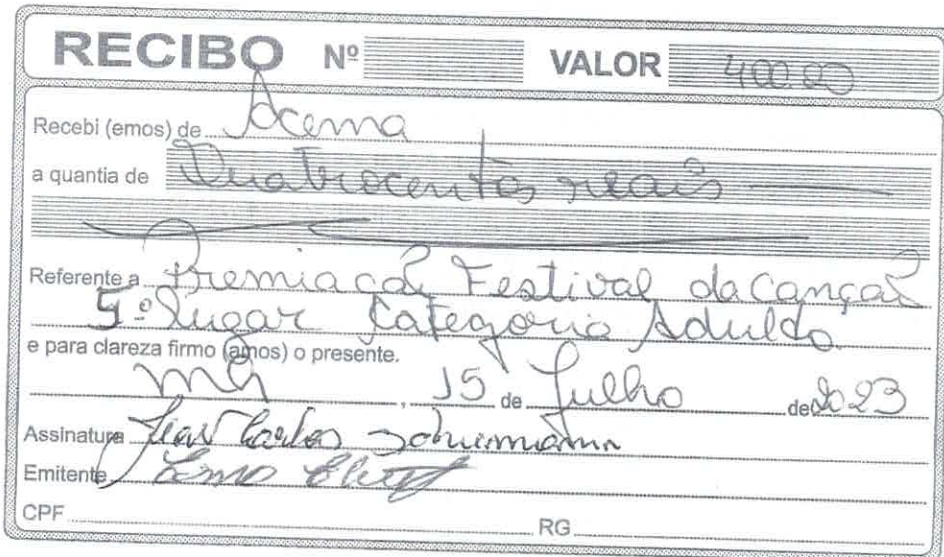 RECIBO Nº VALOR 400.00
Recebi (emos) de Acema
a quantia de Quatrocentos reais
Referente a Premiação Festival da Canção
5º Lugar Categoria Adulto
e para clareza firmo (amos) o presente.
15 de Julho de 2023
Assinatura Jean Carlos
Emitente
CPF RG